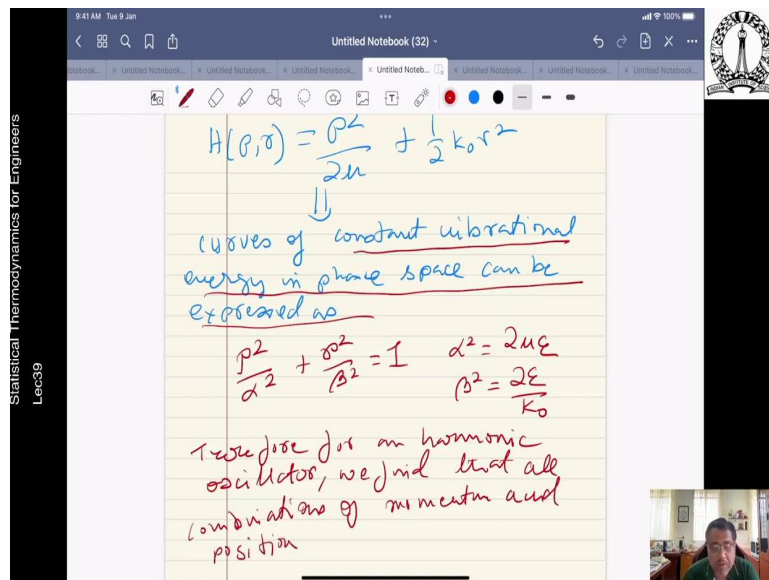 9:41 AM Tue 9 Jan
100%
Untitled Notebook (32)
otebook...
× Untitled Notebook...
× Untitled Notebook...
× Untitled Notebook...
× Untitled Noteb...
× Untitled Notebook...
× Untitled Notebook...
× Untitled Notebook...
Statistical Thermodynamics for Engineers
Lec39
H(p,r) = p²/2μ + 1/2 k₀r²
⇓
curves of constant vibrational
energy in phase space can be
expressed as
p²/α² + r²/β² = 1
α² = 2με
β² = 2ε/k₀
Therefore for an harmonic
oscillator, we find that all
combinations of momentum and
position